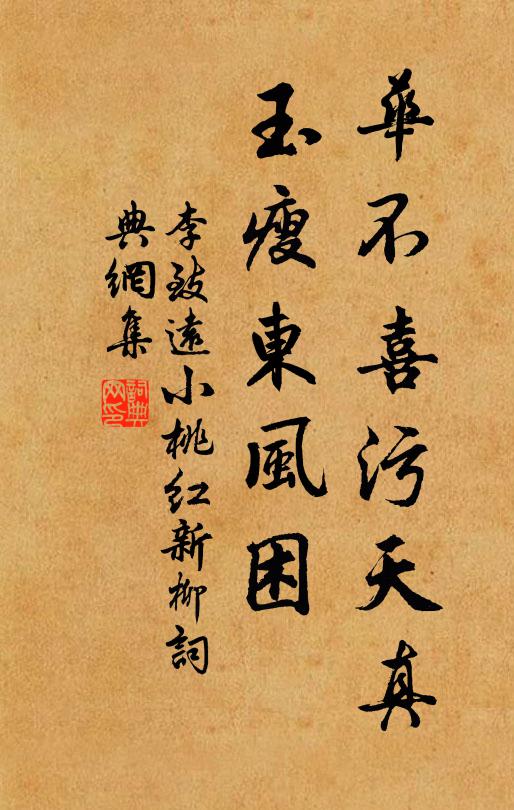 華不喜污天真
玉瘦東風困
李致遠小桃紅新柳詞
典網集
詞典网印